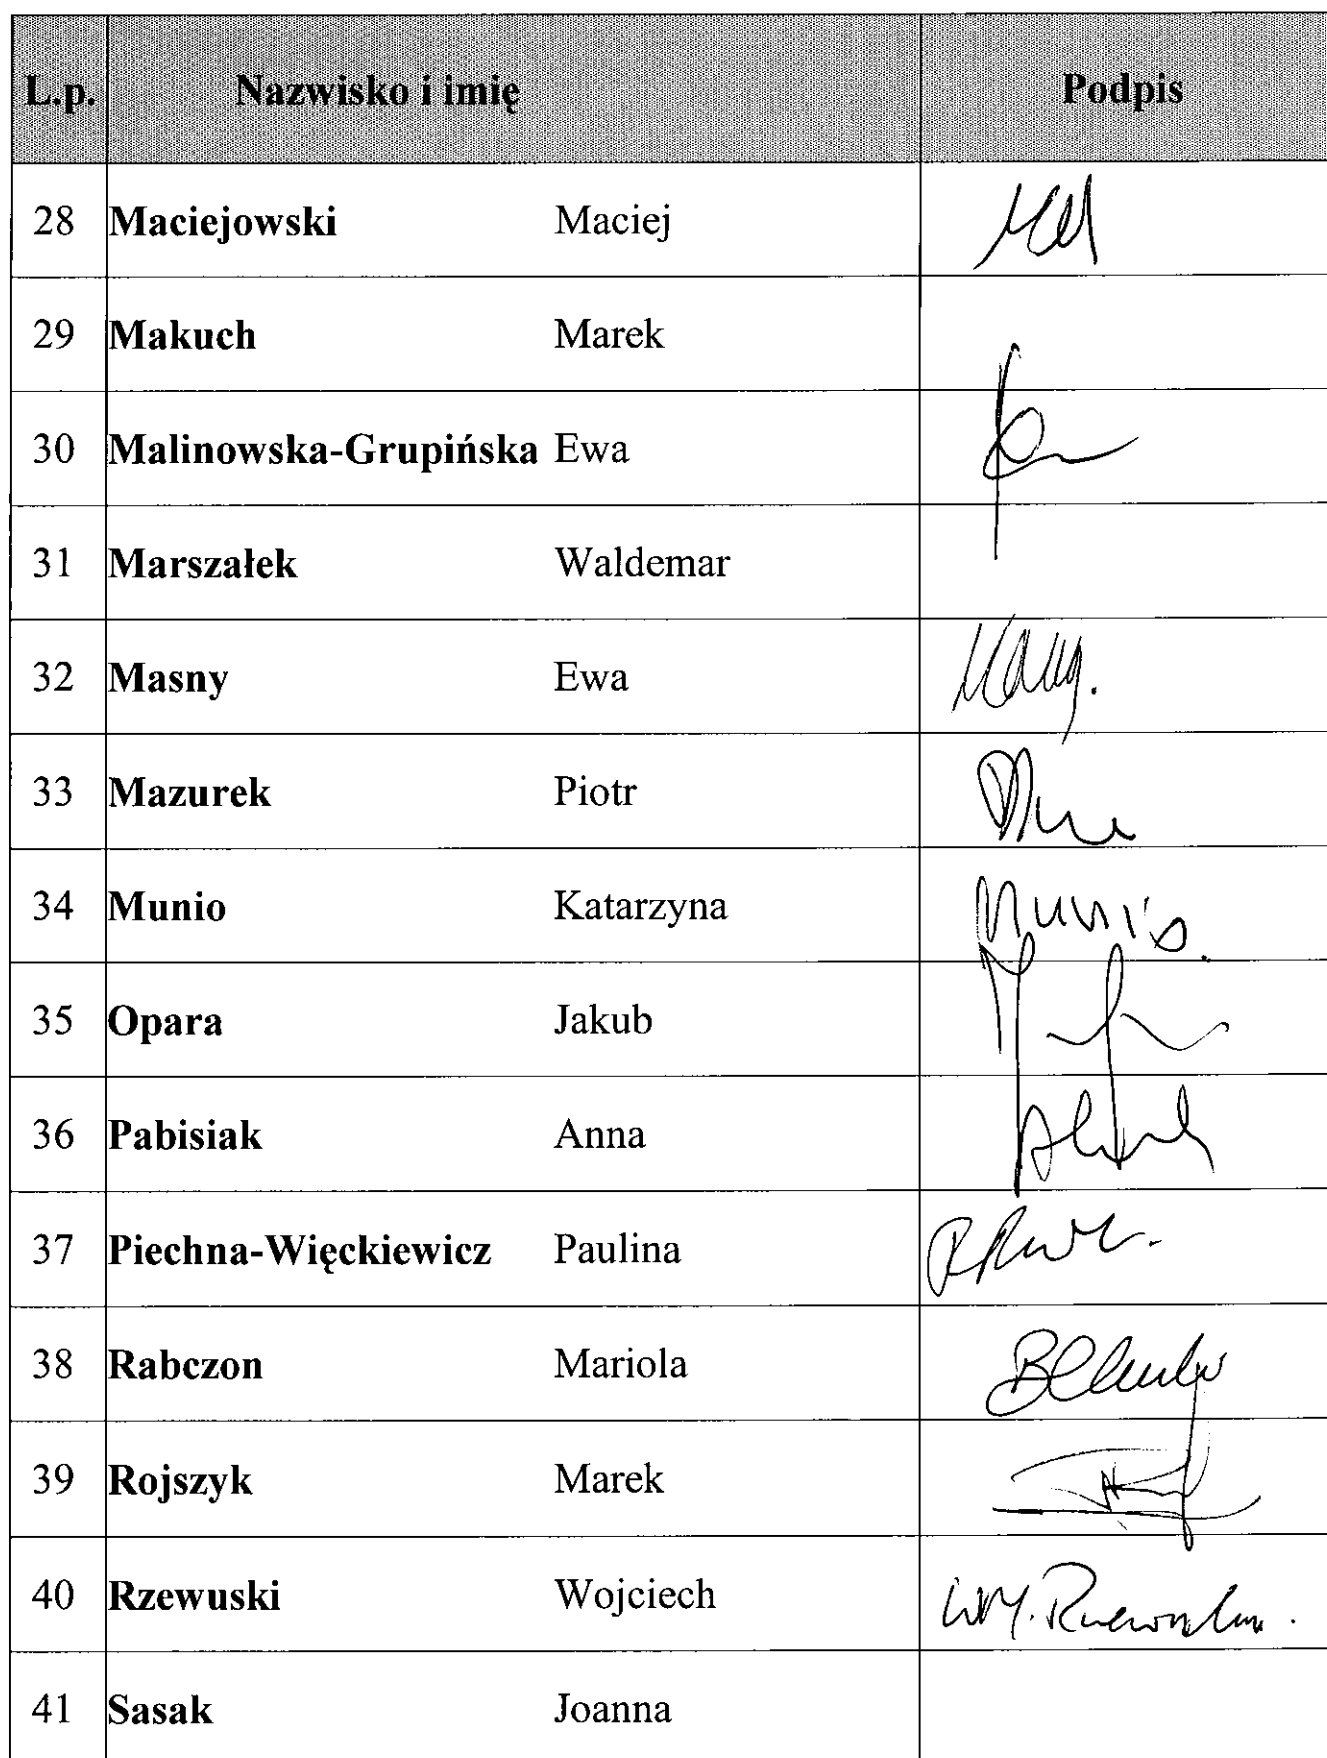 L.p. Nazwisko i imię Podpis
28 Maciejowski Maciej
29 Makuch Marek
30 Malinowska-Grupińska Ewa
31 Marszałek Waldemar
32 Masny Ewa
33 Mazurek Piotr
34 Munio Katarzyna Munio.
35 Opara Jakub
36 Pabisiak Anna
37 Piechna-Więckiewicz Paulina
38 Rabczon Mariola
39 Rojszyk Marek
40 Rzewuski Wojciech
41 Sasak Joanna